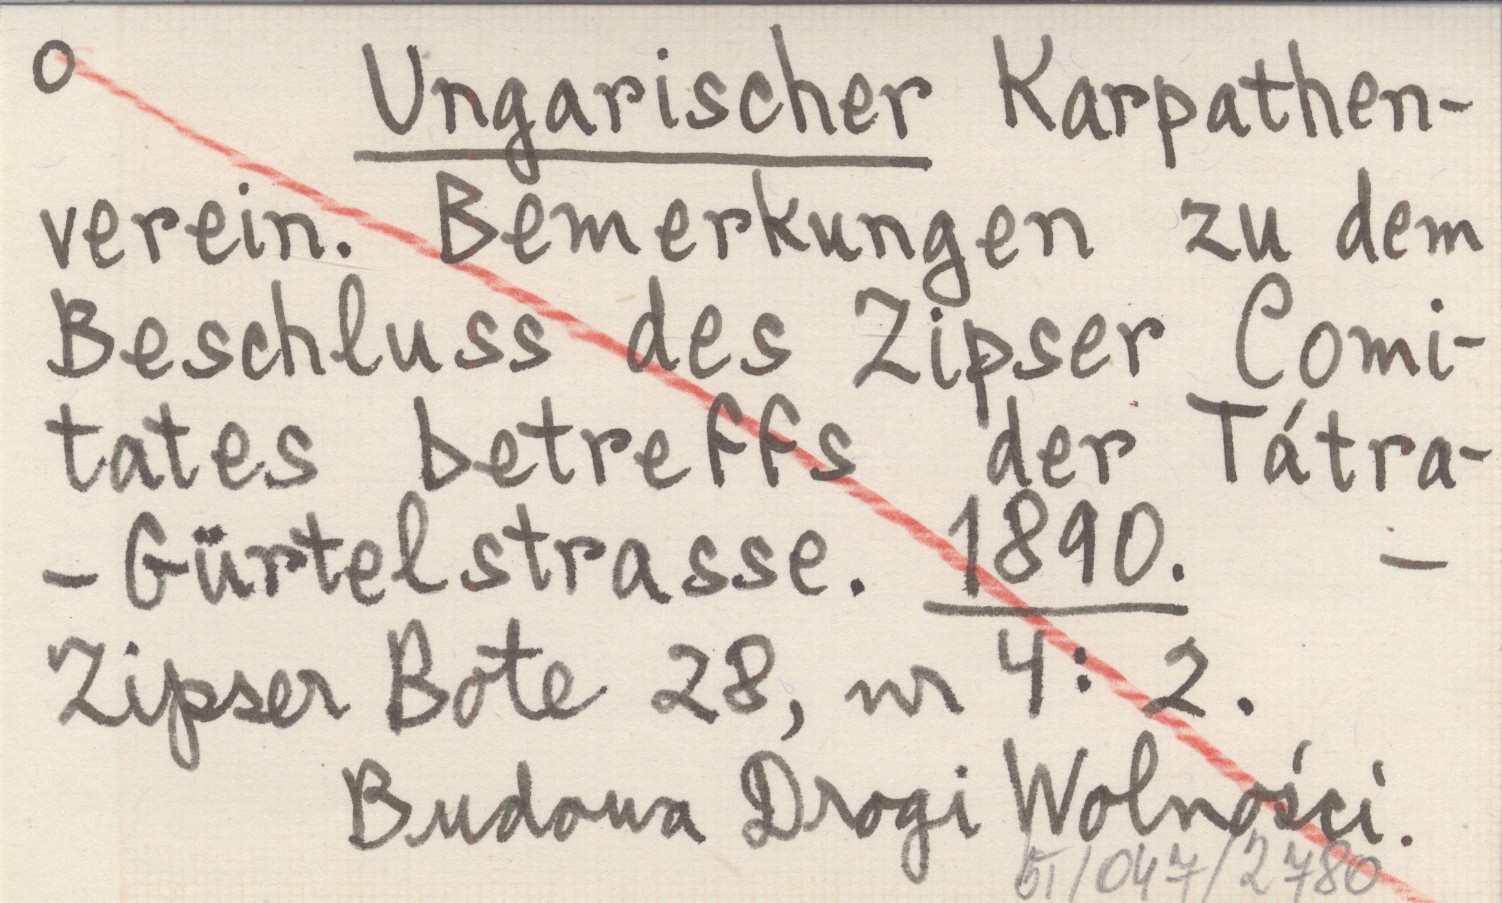 o Ungarischer Karpathen-
verein. Bemerkungen zu dem
Beschluss des Zipser Comi-
tates betreffs der Tátra-
-Gürtelstrasse. 1890. -
Zipser Bote 28, nr 4: 2.
Budowa Drogi Wolności.
/047/2780